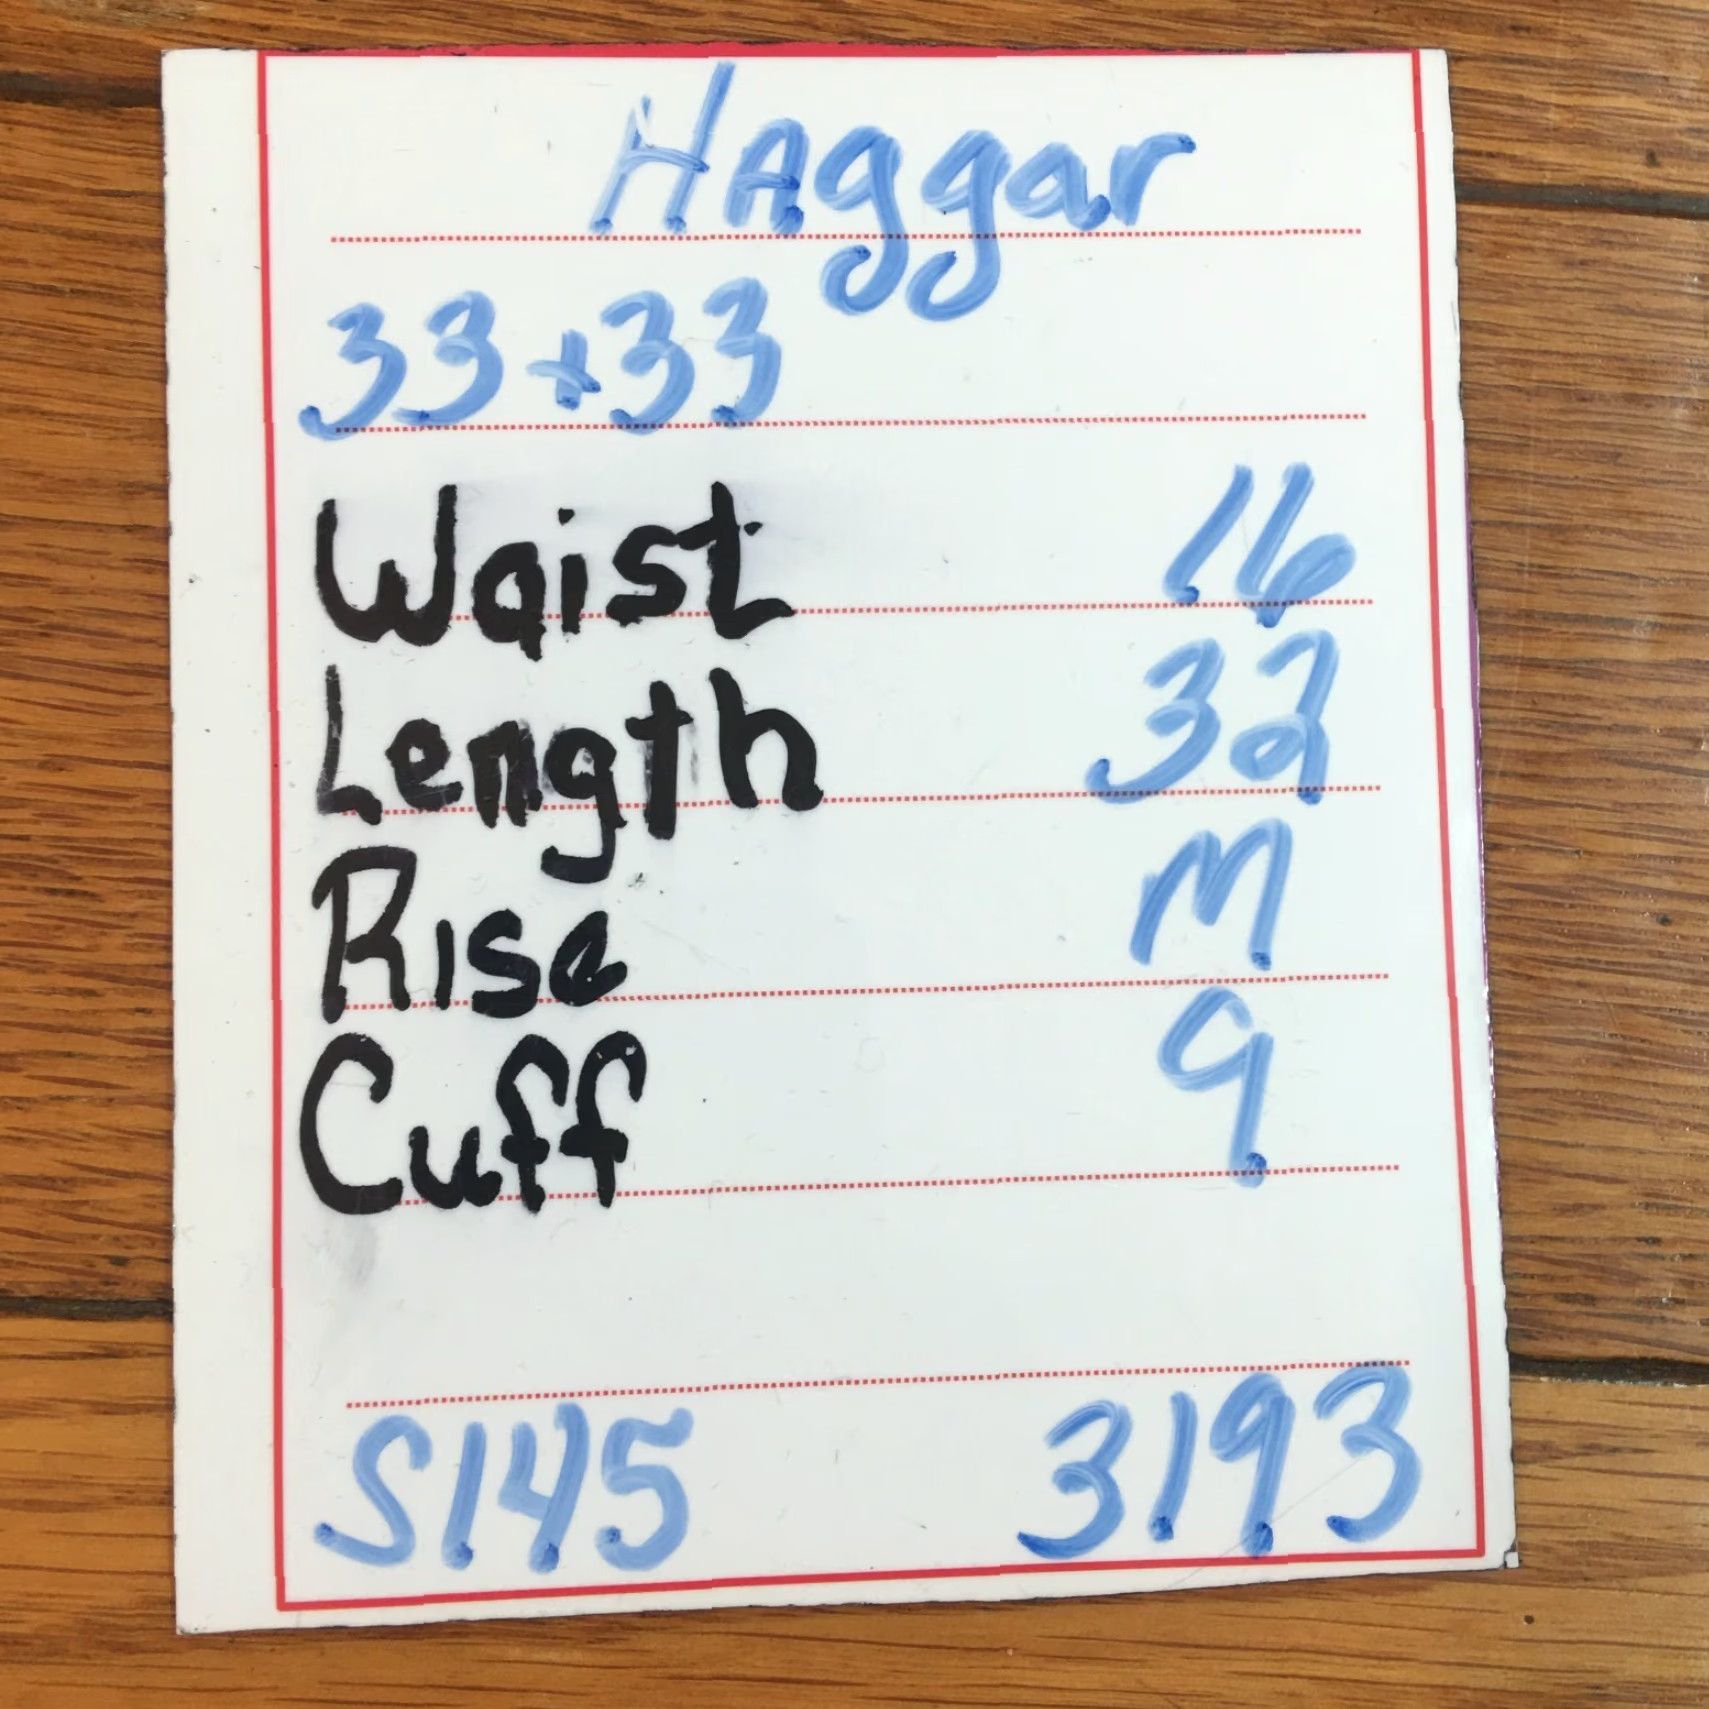 HAggar
33x33
Waist 16
Length 32
Rise M
Cuff 9
S145 3193